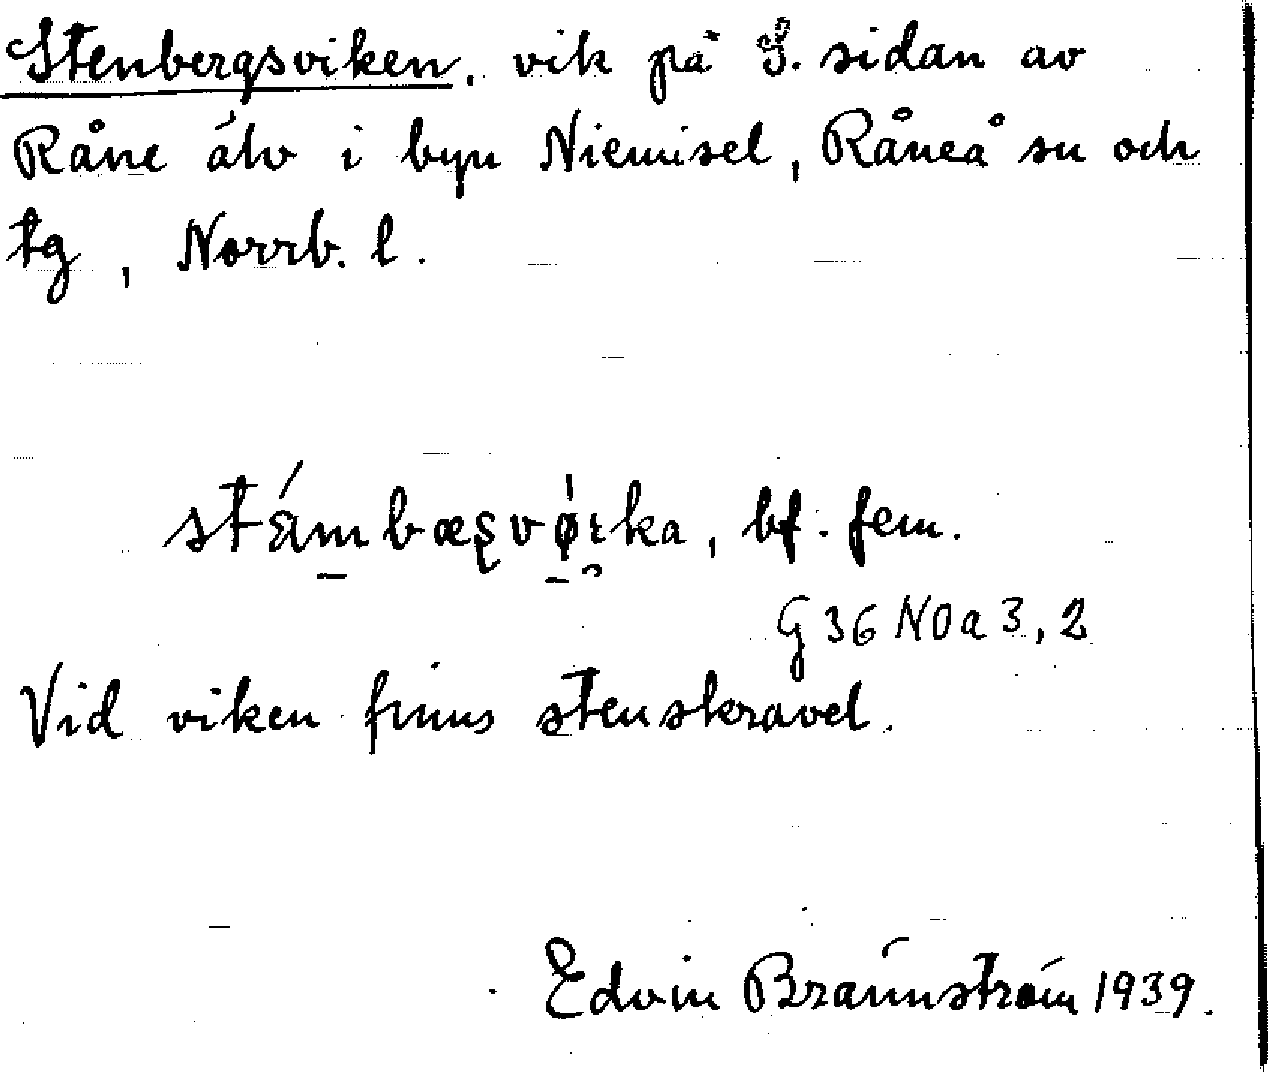 Stenbergsviken, vik på S. sidan av
Råne älv i byn Niemisel, Råneå sn och
tg, Norrb. l.
bf. fem.
G 36 NOa 3, 2
Vid viken finns stenskravel.
Edvin Brännström 1939.